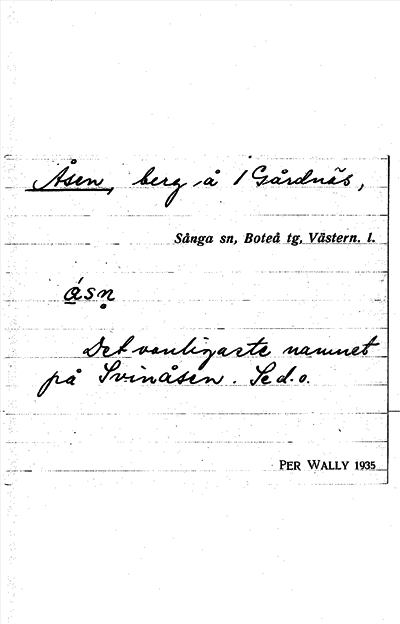 Åsen, berg å 1 Gårdnäs,
Sånga sn, Boteå tg, Västern. l.
ásṇ
Det vanligaste namnet
på Svinåsen. Se d.o.
PER WALLY 1935